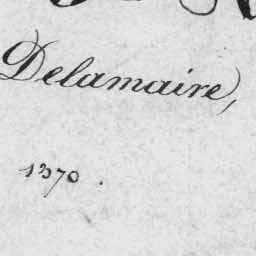 Delamaire,
1370.